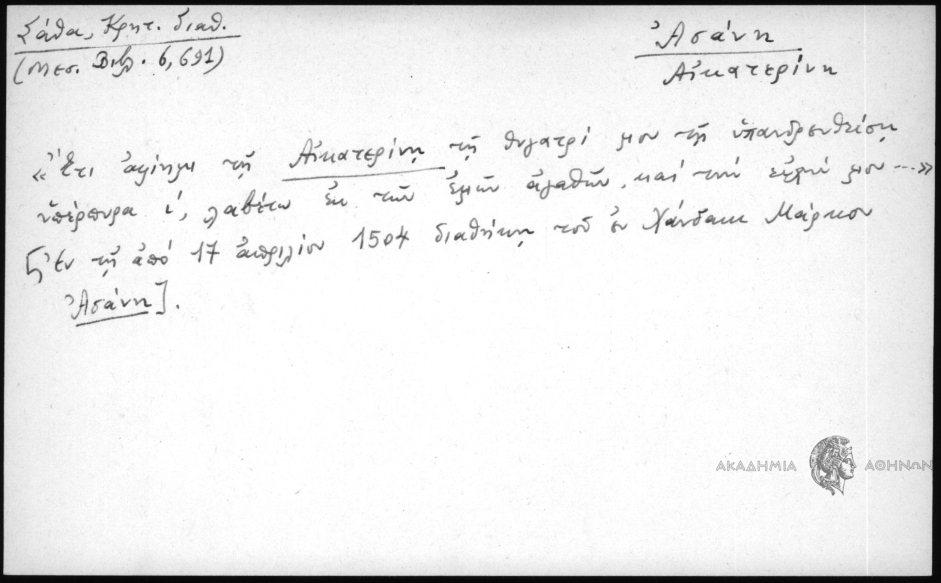 Σάθα, Κρητ. διαθ.
(Μεσ. Βιβ. 6, 691)
Ἀσάνη
Αἰκατερίνη
«Ἔτι ἀφίημι τῇ Αἰκατερίνῃ τῇ θυγατρί μου τῇ ὑπανδρευθείσῃ
ὑπέρπυρα ί, λαβέτω ἐκ τῶν ἐμῶν ἀγαθῶν, καί τήν εὐχήν μου...»
[Ἐν τῇ ἀπό 17 ἀπριλίου 1504 διαθήκῃ τοῦ ἐν Χάνδακι Μάρκου
Ἀσάνη].
ΑΚΑΔΗΜΙΑ ΑΘΗΝΩΝ